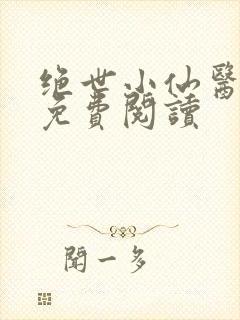 绝世小仙醫
免費閱讀
聞一多